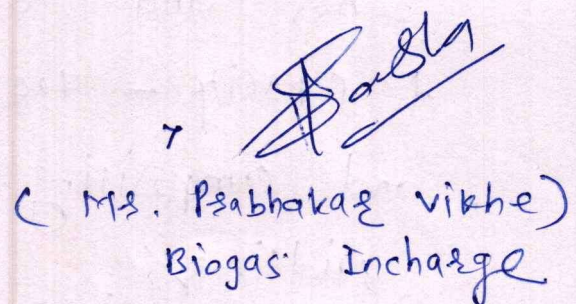 ( Mr. Prabhakar vikhe)
Biogas Incharge